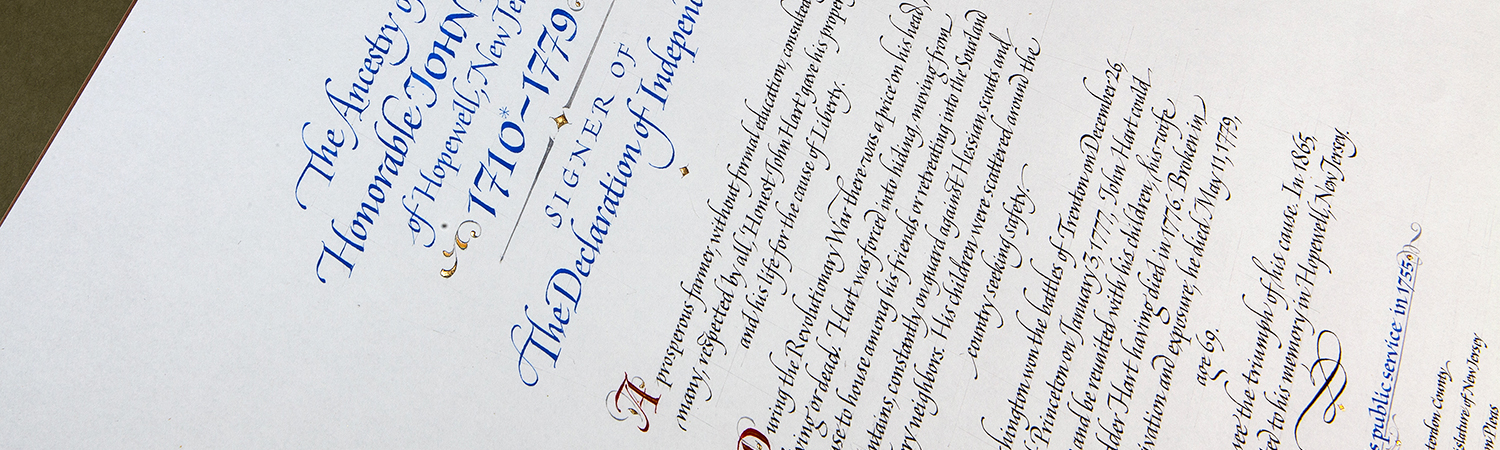 The Ancestry of
Honorable JOHN
of Hopewell, New Jer
1710*–1779
SIGNER OF
The Declaration of Independ
A prosperous farmer, without formal education, consulted
many, respected by all, Honest John Hart gave his proper
and his life for the cause of Liberty.
During the Revolutionary War there was a price on his head,
ving or dead. Hart was forced into hiding, moving from
use to house among his friends or retreating into the Sourland
ntains, constantly on guard against Hessian scouts and
ry neighbors. His children were scattered around the
country seeking safety.
hington won the battles of Trenton on December 26,
Princeton on January 3, 1777, John Hart could
and be reunited with his children, his wife
dder Hart having died in 1776. Broken in
ivation and exposure, he died May 11, 1779,
age 69.
see the triumph of his cause. In 1865,
ed to his memory in Hopewell, New Jersey.
s public service in 1755
terdon County
islature of New Jersey
n Pleas